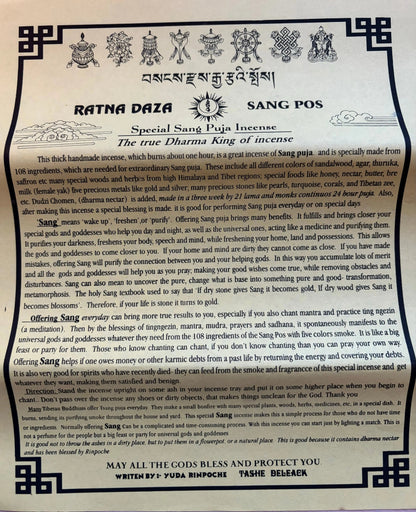 བསངས་རྫས་རྒྱ་རྩྭའི་སྤོས།
RATNA DAZA SANG POS
Special Sang Puja Incense
The true Dharma King of incense
This thick handmade incense, which burns about one hour, is a great incense of Sang puja. and is specially made from
108 ingredients, which are needed for extraordinary Sang puja. These include all different colors of sandalwood, agar, thuruka,
saffron etc. many special woods and herbs from high Himalaya and Tibet regions; special foods like honey, nectar, butter, bre
milk (female yak) five precious metals like gold and silver; many precious stones like pearls, turquoise, corals, and Tibetan zee,
etc. Dudzi Chomen, (dharma nectar) is added, made in three week by 21 lama and monks continuous 24 hour puja. Also,
after making this incense a special blessing is made. it is good for performing Sang puja everyday or on special days
'Sang' means 'wake up', 'freshen' or 'purify'. Offering Sang puja brings many benefits. It fulfills and brings closer your
special gods and goddesses who help you day and night, as well as the universal ones, acting like a medicine and purifying them.
It purifies your darkness, freshens your body, speech and mind, while freshening your home, land and possessions. This allows
the gods and goddesses to come closer to you. If your home and mind are dirty they cannot come as close. If you have made
mistakes, offering Sang will purify the connection between you and your helping gods. In this way you accumulate lots of merit
and all the gods and goddesses will help you as you pray; making your good wishes come true, while removing obstacles and
disturbances. Sang can also mean to uncover the pure, change what is base into something pure and good- transformation,
metamorphosis. The holy Sang textbook used to say that 'If dry stone gives Sang it becomes gold, If dry wood gives Sang it
becomes blossoms'. Therefore, if your life is stone it turns to gold.
Offering Sang everyday can bring more true results to you, especially if you also chant mantra and practice ting ngezin
(a meditation). Then by the blessings of tingngezin, mantra, mudra, prayers and sadhana, it spontaneously manifests to the
universal gods and goddesses whatever they need from the 108 ingredients of the Sang Pos with five colors smoke. It is like a big
feast or party for them. Those who know chanting can chant, if you don't know chanting than you can pray your own way.
Offering Sang helps if one owes money or other karmic debts from a past life by returning the energy and covering your debts.
It is also very good for spirits who have recently died- they can feed from the smoke and fragrance of this special incense and get
whatever they want, making them satisfied and benign.
Direction. Stand the incense upright on some ash in your incense tray and put it on some higher place when you begin to
chant . Don't pass over the incense any shoes or dirty objects, that makes things unclean for the God. Thank you
Many Tibetan Buddhists offer Tsang puja everyday. They make a small bonfire with many special plants, woods, herbs, medicines, etc, in a special dish. It
burns, sending its purifing smoke throughout the house and yard. This special Sang incense makes this a simple process for those who do not have time
or ingredients. Normally offering Sang can be a complicated and time-consuming process. With this incense you can start just by lighting a match. This is
not a perfume for the people but a big feast or party for universal gods and goddesses
It is good not to throw the ashes in a dirty place, but to put them in a flowerpot, or a natural place. This is good because it contains dharma nectar
and has been blessed by Rinpoche
MAY ALL THE GODS BLESS AND PROTECT YOU
WRITEN BY :- YUDA RINPOCHE TASHE DELEACK